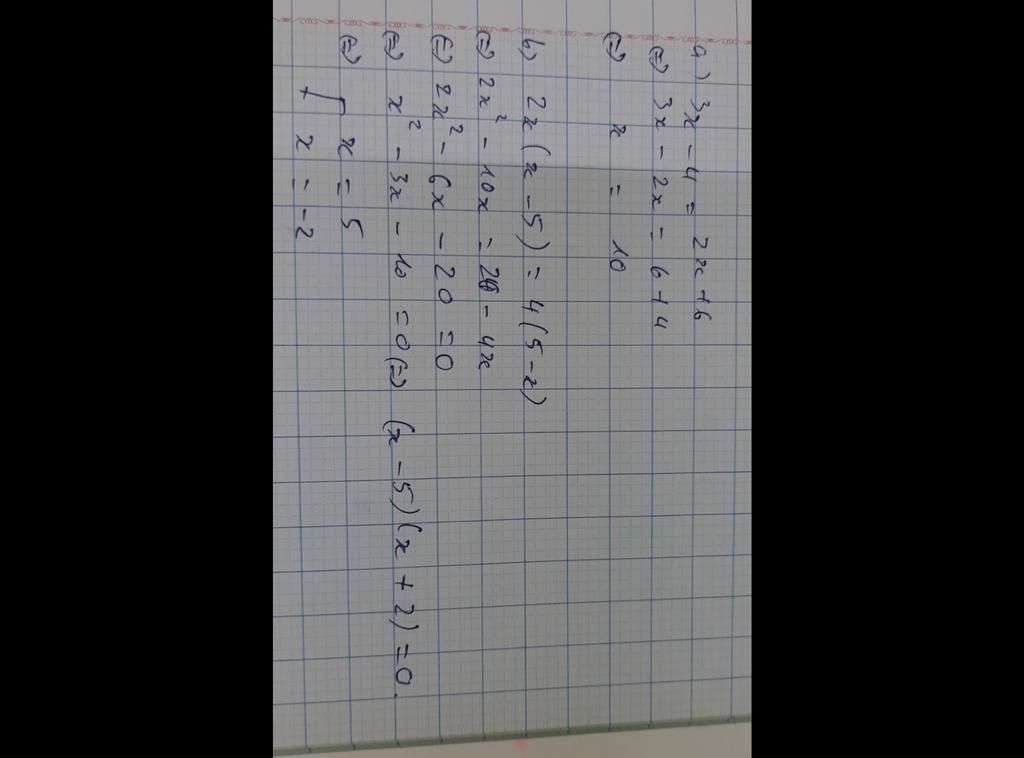 a) 3x - 4 = 2x + 6
(=) 3x - 2x = 6 + 4
(=) x = 10
b) 2x(x - 5) = 4(5 - x)
(=) 2x² - 10x = 20 - 4x
(=) 2x² - 6x - 20 = 0
(=) x² - 3x - 10 = 0 (=) (x - 5)(x + 2) = 0.
(=) [ x = 5
x = -2